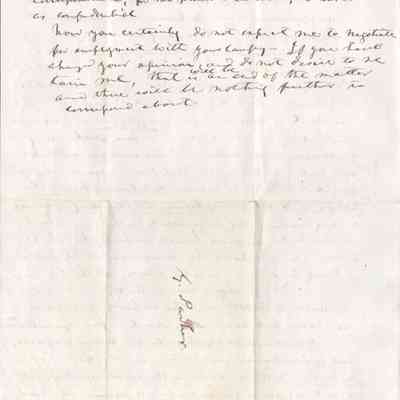 as confidential
Now you certainly do not expect me to negotiate
for employment with your Compy - If you have
changed your opinion, and do not desire to re
tain me, that will be an end of the matter
and there will be nothing further to
correspond about.
G.